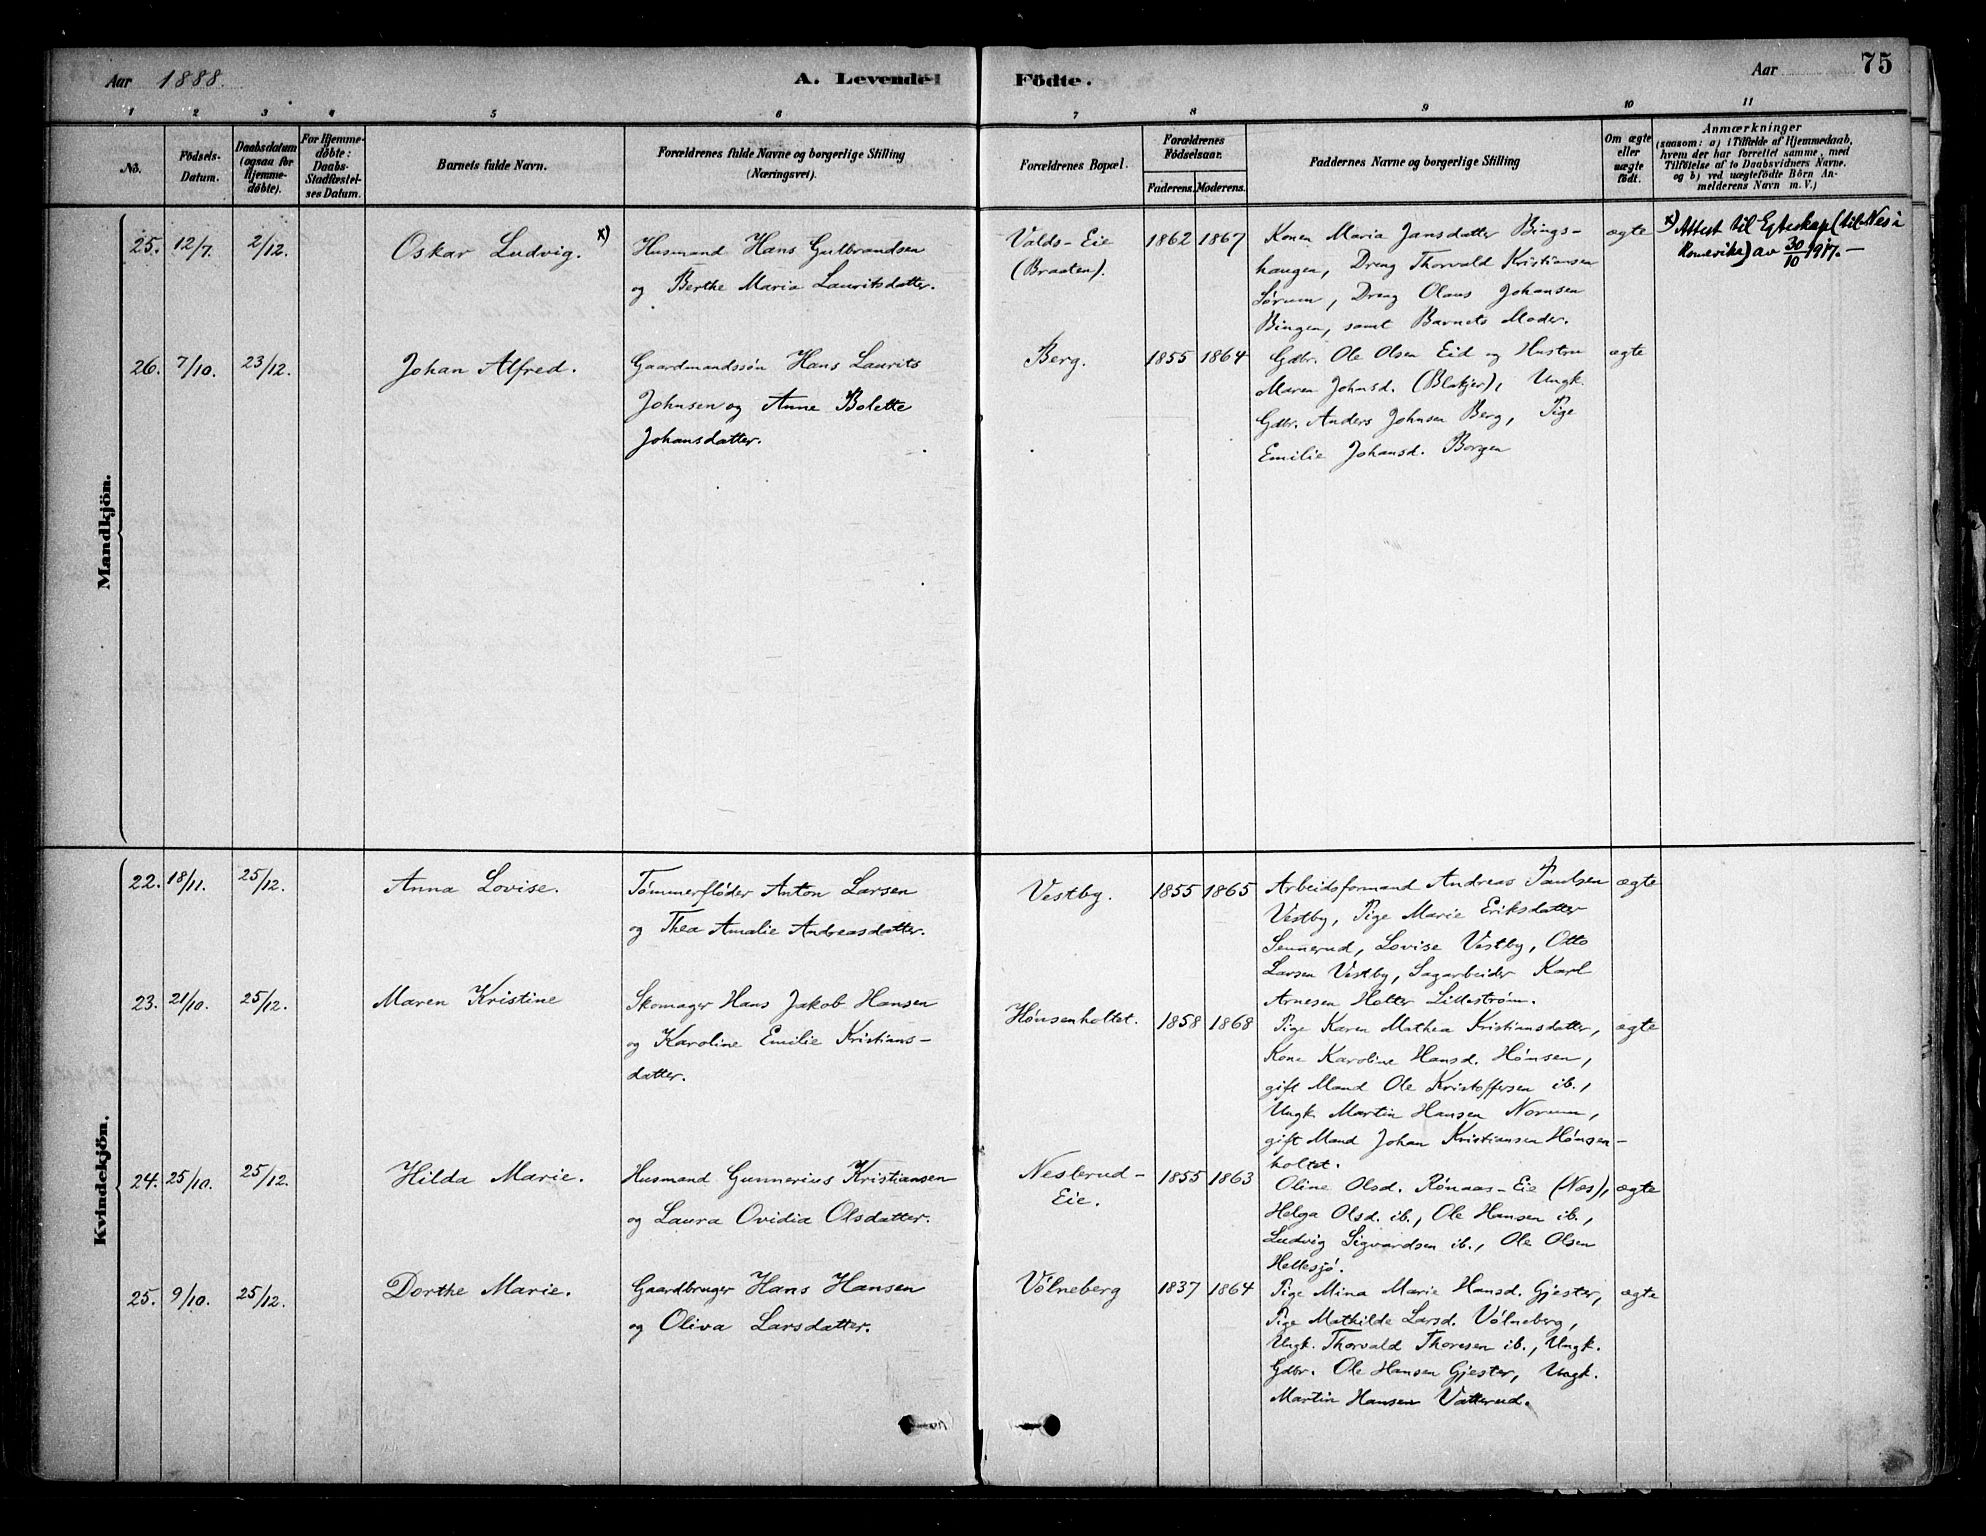 Aar 1888. A. Levende Födte. Aar 75
1 2 3 4 5 6 7 8 9 10 11
No. Födsels-Datum. Daabsdatum (ogsaa for Hjemmedöbte). For Hjemmedöbte: Daabs-Stadfæstelses Datum. Barnets fulde Navn. Forældrenes fulde Navne og borgerlige Stilling (Næringsvei). Forældrenes Bopæl. Forældrenes Födselsaar. Faderens. Moderens. Faddernes Navne og borgerlige Stilling Om ægte eller uægte födt. Anmærkninger (saasom: a) i Tilfælde af Hjemmedaab, hvem der har forrettet samme, med Tilföielse af to Daabsvidners Navne. og b) ved uægtefödte Börn Anmelderens Navn m. V.)
Mandkjön.
25. 12/7. 2/12. Oskar Ludvig. x) Husmand Hans Gulbrandsen
og Berthe Maria Lauritsdatter.
Valds-Eie
(Braaten).
1862 1867
Konen Maria Jansdatter Bings-
haugen, Dreng Thorvald Kristiansen
Sørum, Dreng Olaus Johansen
Bingen, samt Barnets Moder.
ægte
x) Attest til Egteskap (til Nes i
Romerike) av 30/10 1917.—
26. 7/10. 23/12. Johan Alfred. Gaardmandssøn Hans Laurits
Johnsen og Anne Bolette
Johansdatter.
Berg.
1855 1864
Gdbr. Ole Olsen Eid og Hustru
Maren Johnsd. (Blakjer), Ungk.
Gdbr. Anders Johnsen Berg, Pige
Emilie Johansd. Borgen
ægte
Kvindekjön.
22. 18/11. 25/12. Anna Lovise. Tømmerfløder Anton Larsen
og Thea Amalie Andreasdatter.
Vestby.
1855 1865
Arbeidsformand Andreas Paulsen
Vestby, Pige Marie Eriksdatter
Sennerud, Lovise Vestby, Otto
Larsen Vestby, Sagarbeider Karl
Arnesen Holter Lillestrøm.
ægte
23. 21/10. 25/12. Maren Kristine Skomager Hans Jakob Hansen
og Karoline Emilie Kristians-
datter.
Hønsenholtet.
1858 1868
Pige Karen Mathea Kristiansdatter,
Kone Karoline Hansd. Hønsen,
gift Mand Ole Kristoffersen ib.,
Ungk. Martin Hansen Norum,
gift Mand Johan Kristiansen Hønsen-
holtet.
ægte
24. 25/10. 25/12. Hilda Marie. Husmand Gunnerius Kristiansen
og Laura Ovidia Olsdatter.
Neslerud-
Eie.
1855 1863
Oline Olsd. Rønaas-Eie (Næs),
Helga Olsd. ib., Ole Hansen ib.,
Ludvig Sigvardsen ib., Ole Olsen
Hellesjø.
ægte
25. 9/10. 25/12. Dorthe Marie. Gaardbruger Hans Hansen
og Oliva Larsdatter.
Vølneberg
1837 1864
Pige Mina Marie Hansd. Gjester,
Pige Mathilde Larsd. Vølneberg,
Ungk. Thorvald Thoresen ib., Ungk.
Gdbr. Ole Hansen Gjester, Ungk.
Martin Hansen Vatterud.
ægte